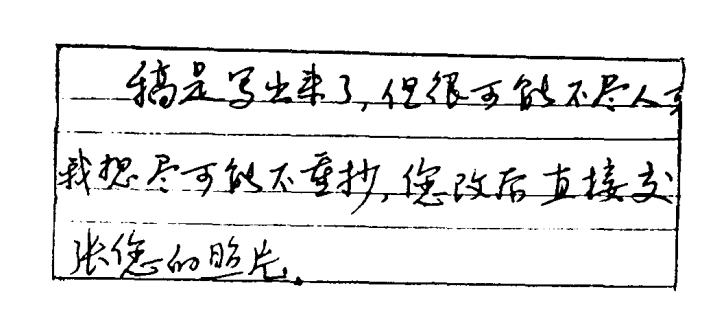 稿是写出来了,但很可能不尽人
我想尽可能不重抄,您改后直接交
张您的照片.